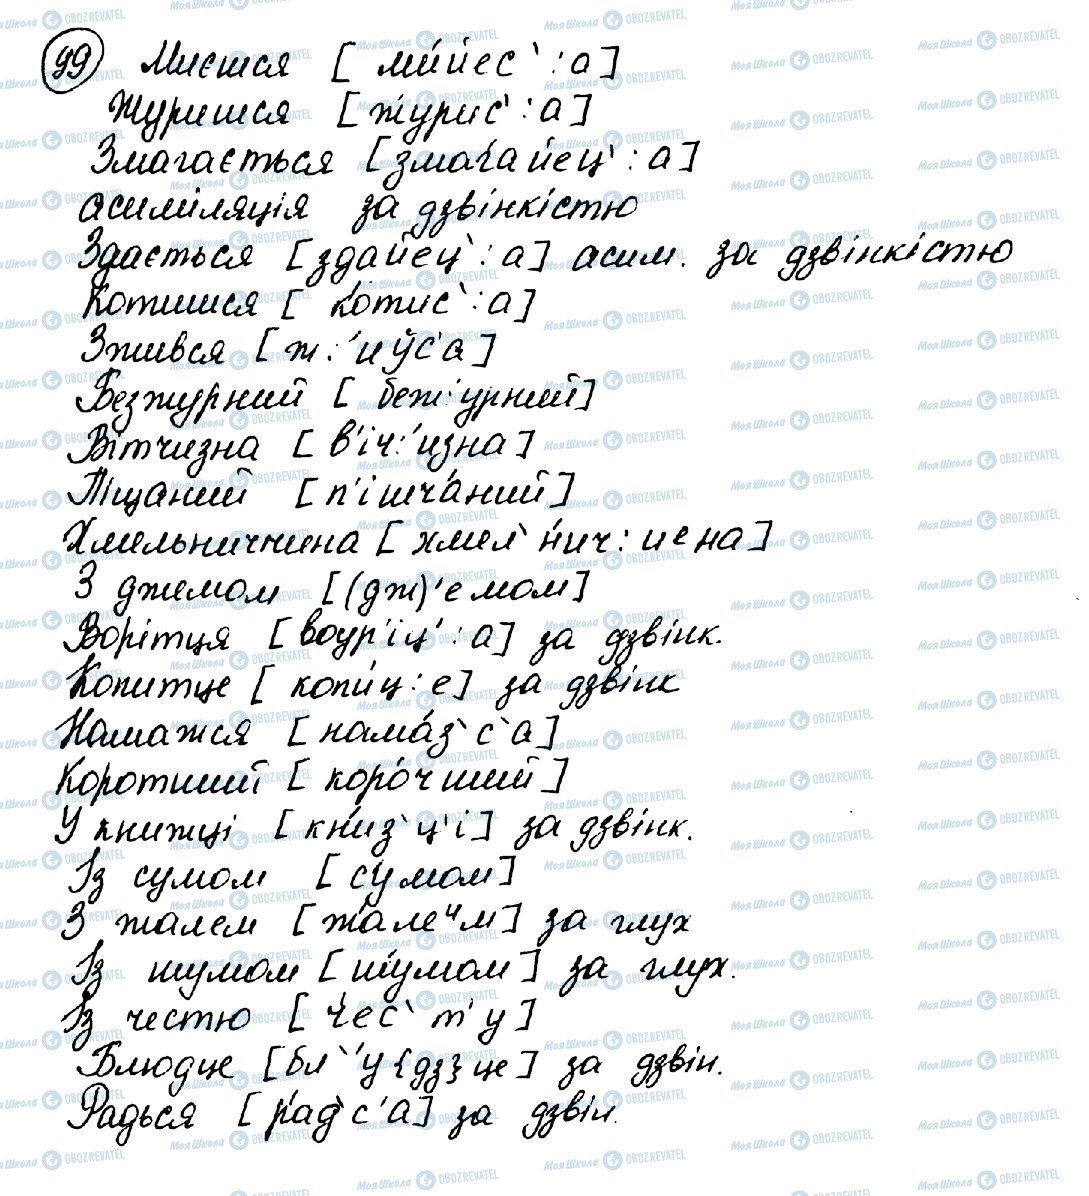 99 Миєшся [ ми́йес` : а ]
Журишся [ жу́рис' : а ]
Змагається [ змага́йец' : а ]
асиміляція за дзвінкістю
Здається [ здайец` : а ] асим. за дзвінкістю
Котишся [ ко́тис` : а ]
Зжився [ ж : 'иўс'а ]
Безжурний [ беж : урний ]
Вітчизна [ в'іч : 'изна ]
Піщаний [ п'ішча́ний ]
Хмельниччина [ хмел` нич : иена ]
З джемом [ (дж)'емом ]
Ворітця [ воур'іц' : а ] за дзвінк.
Копитце [ копи́ц : е ] за дзвінк
Намажся [ нама́з`с`а ]
Коротший [ коро́чший ]
У книжці [ кни́з`ц'і ] за дзвінк.
Із сумом [ су́мом ]
З жалем [ жа́леим ] за глух
Із шумом [ шу́мом ] за глух.
Із честю [ че́с` т'у ]
Блюдце [ бл`'у{дз}це ] за дзвін.
Радься [ ра́д`с'а ] за дзвін.